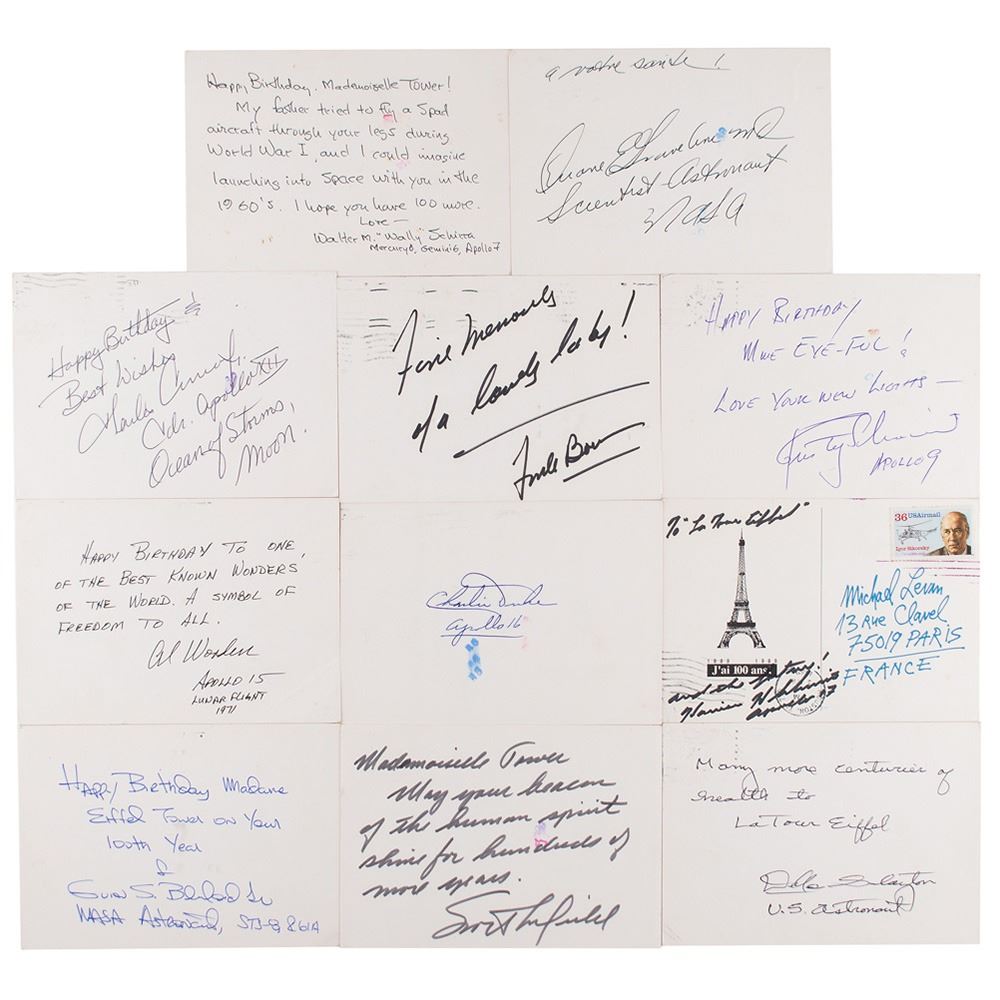 Happy Birthday, Mademoiselle Tower!
My father tried to fly a Spad
aircraft through your legs during
World War I, and I could imagine
launching into Space with you in the
1960's. I hope you have 100 more.
Love —
Walter M. "Wally" Schirra
Mercury 8, Gemini 6, Apollo 7
a votre sante!
Duane E Graveline MD
Scientist Astronaut
NASA
Happy Birthday &
Best Wishes
Charles Conrad Jr.
Cdr. Apollo XII
Ocean of Storms,
Moon.
Fond Memories
of a lovely lady!
Frank Borman
HAPPY BIRTHDAY
MME EYE-FUL!
LOVE YOUR NEW LIGHTS —
Rusty Schweickart
APOLLO 9
HAPPY BIRTHDAY TO ONE,
OF THE BEST KNOWN WONDERS
OF THE WORLD. A SYMBOL OF
FREEDOM TO ALL.
Al Worden
APOLLO 15
LUNAR FLIGHT
1971
Charlie Duke
Apollo 16
To "La Tour Eiffel"
36 USAirmail
Igor Sikorsky
Michael Levin
13 Rue Clavel
75019 PARIS
FRANCE
J'ai 100 ans.
and the future!
Harrison H Schmitt
Apollo 17
Happy Birthday Madame
Eiffel Tower on Your
100th Year
Guion S. Bluford Jr
NASA Astronaut, STS-8, 61A
Madamoiselle Tower
May your beacon
of the human spirit
shine for hundreds of
more years.
Many more centuries of
health to
La Tour Eiffel
Deke Slayton
U.S. Astronaut